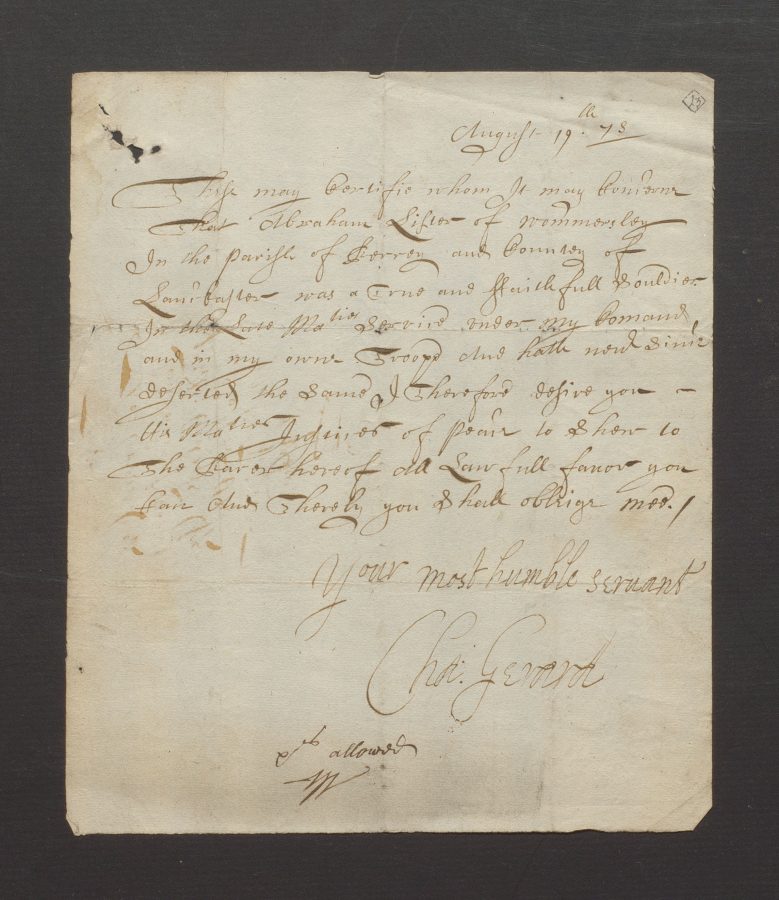 15
August 19th. 73
These may Certifie whom It may Conserne
That Abraham Lister of Wommersley
In the parish of and Countey of
Lancaster was a True and ffaithfull Souldier
In the Late Maties Service under my Comand
and in my owne Troope And hath never Since
deserted the Same I Therefore desire you
His Maties Justices of peace to Shew to
The Bearer hereof All Lawfull favor you
Can And Thereby you Shall obleige mee./
Your most humble servant
Cha: Gerard
allowed